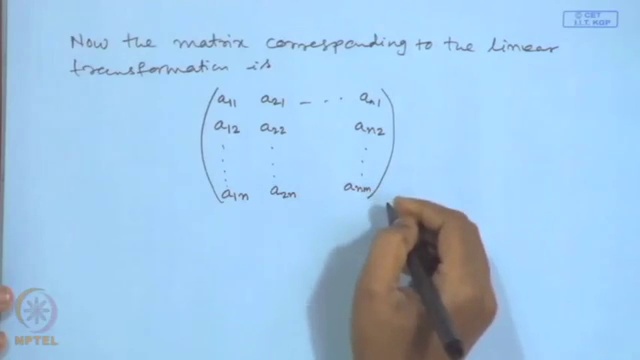 © CET
I.I.T. KGP
Now the matrix corresponding to the linear
transformation is
a11 a21 - - .. an1
a12 a22 an2
a1n a2n anm
NPTEL